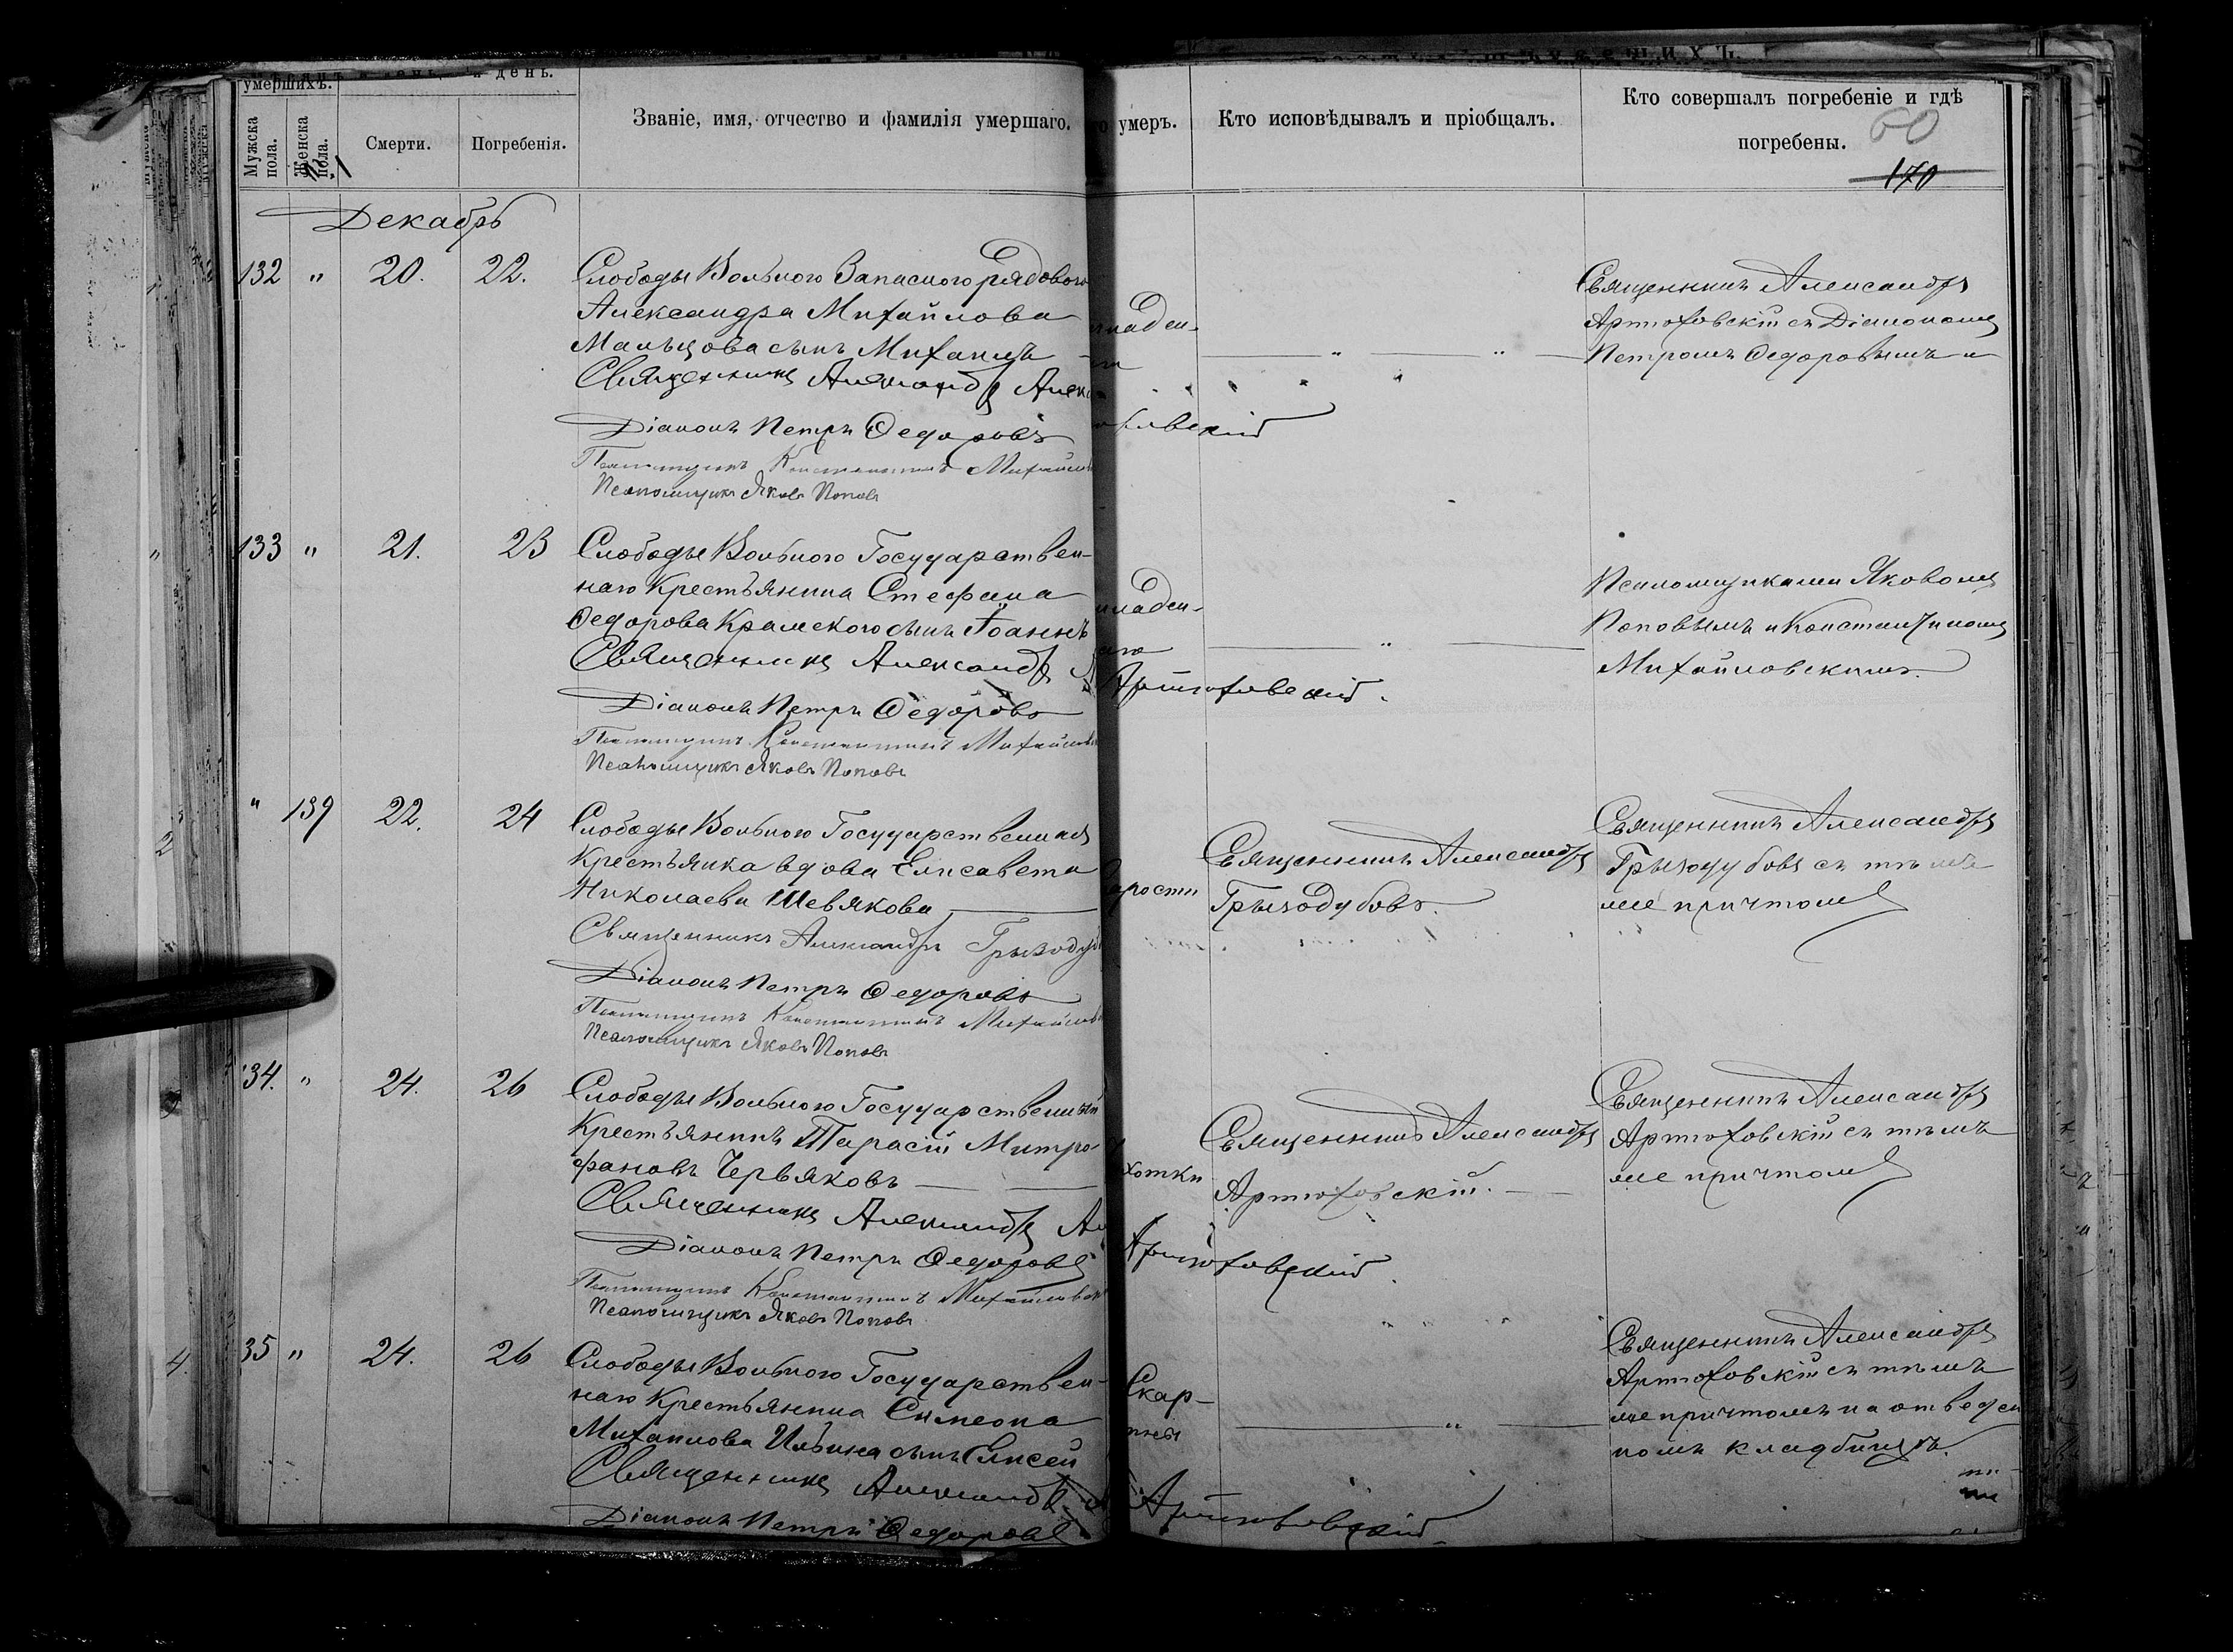 умершихъ.
и день.
Мужска пола.
Женска пола.
Смерти.
Погребенія.
Званіе, имя, отчество и фамилія умершаго.
умеръ.
Кто исповѣдывалъ и пріобщалъ.
Кто совершалъ погребеніе и гдѣ
погребены.
60
170
Декабрь
132 " 20. 22.
Слободы Вольного Запасного рядового
Александра Михайлова
Мальцова сынъ Михаилъ
Священникъ Александръ
Діаконъ Петръ Федоровъ
Псаломщикъ Константинъ
Псаломщикъ Яковъ Поповъ
Священникъ Александръ
Артюховскій съ Діакономъ
Петромъ Федоровымъ и
133 " 21. 23
Слободы Вольного Государствен-
наго Крестьянина Стефана
Федорова Крамского сынъ Іоаннъ
Священникъ Александръ
Артюховскій.
Діаконъ Петръ Федоровъ
Псаломщикъ Константинъ
Псаломщикъ Яковъ Поповъ
Псаломщиками Яковомъ
Поповымъ и Константиномъ
Михайловскимъ.
" 139 22. 24
Слободы Вольного Государственная
Крестьянка вдова Елисавета
Николаева Шевякова
Священникъ Александръ
Діаконъ Петръ Федоровъ
Псаломщикъ Константинъ
Псаломщикъ Яковъ Поповъ
Священникъ Александръ
Грызодубовъ.
Священникъ Александръ
Грызодубовъ съ тѣмъ
же причтомъ
34. " 24. 26
Слободы Вольного Государственный
Крестьянинъ Тарасій Митро-
фановъ Червяковъ
Священникъ Александръ
Артюховскій.
Діаконъ Петръ Федоровъ
Псаломщикъ Константинъ
Псаломщикъ Яковъ Поповъ
Священникъ Александръ
Артюховскій.
Священникъ Александръ
Артюховскій съ тѣмъ
же причтомъ
35 " 24. 26
Слободы Вольного Государствен-
наго Крестьянина Симеона
Михаилова Ильина сынъ Елисей
Священникъ Александръ
Діаконъ Петръ Федоровъ
Скар-
Священникъ Александръ
Артюховскій съ тѣмъ
же причтомъ на отведен
номъ кладбищѣ.